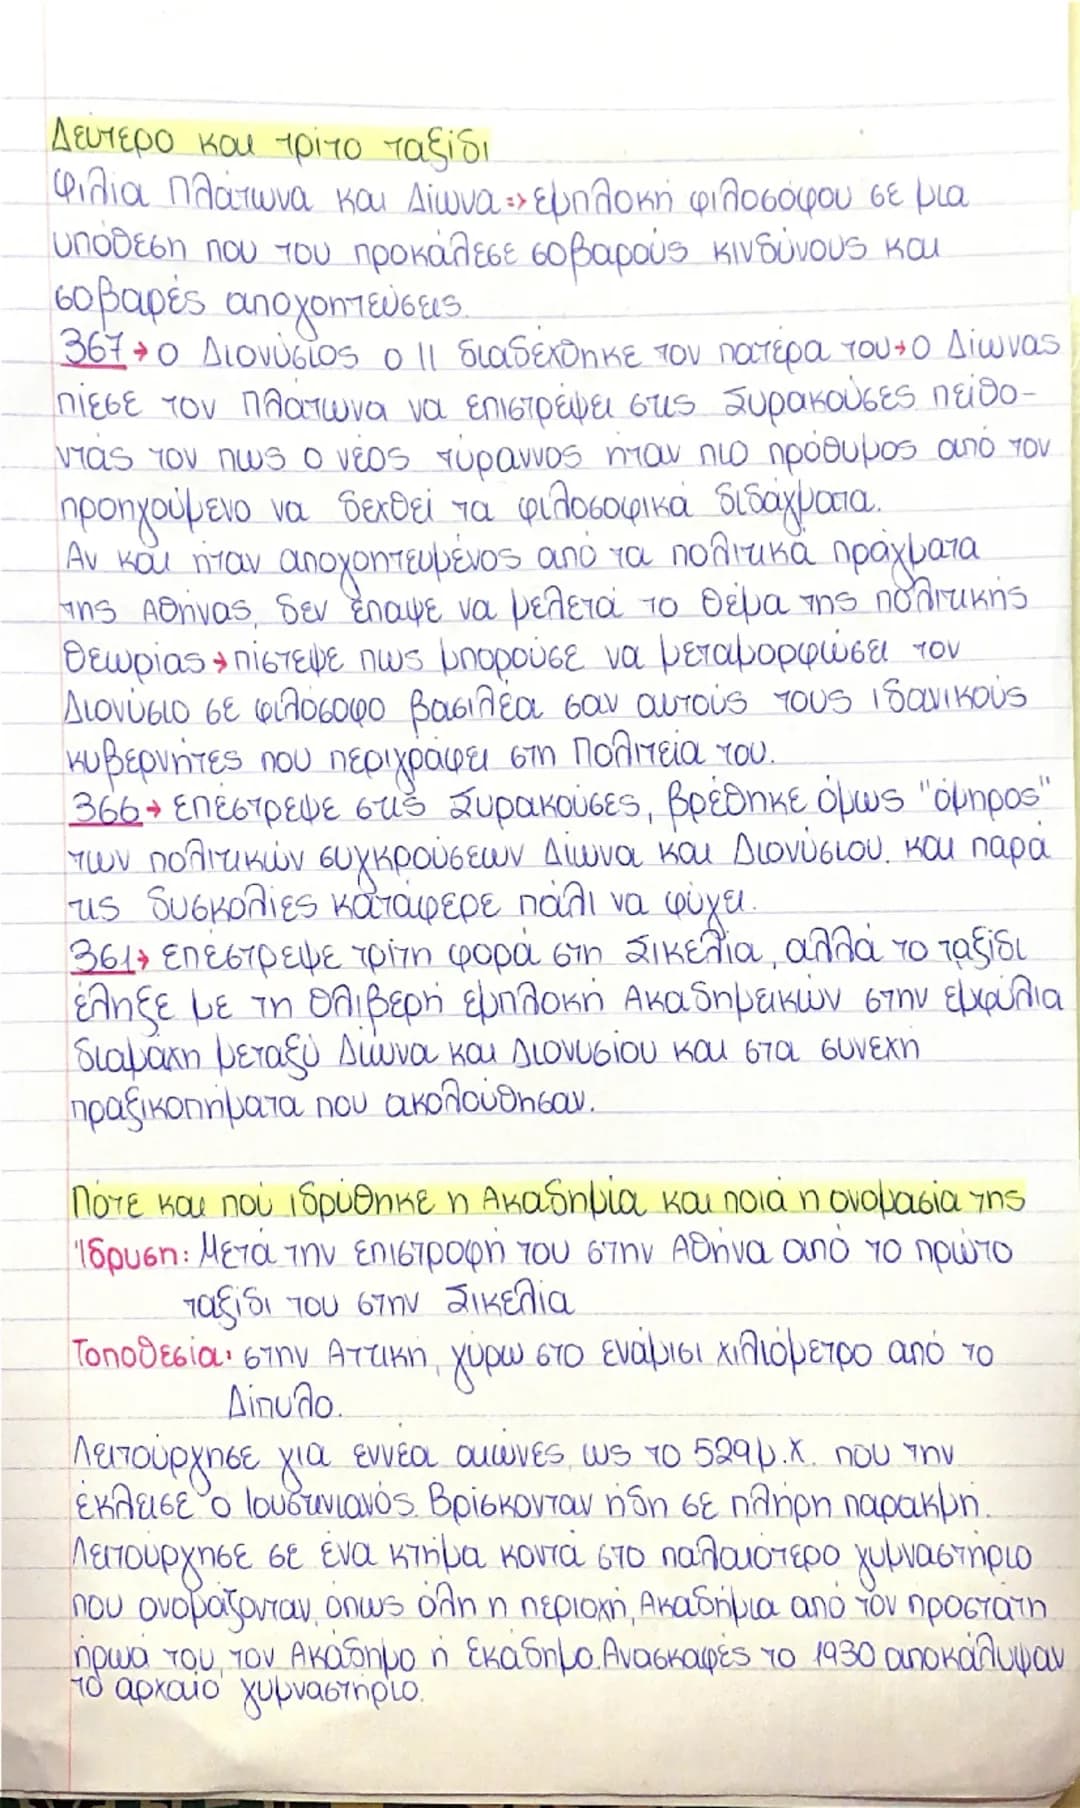 Δεύτερο και τρίτο ταξίδι
Φιλία Πλάτωνα και Δίωνα => εμπλοκή φιλοσόφου σε μια
υπόθεση που του προκάλεσε σοβαρούς κινδύνους και
σοβαρές απογοητεύσεις.
367 → ο Διονύσιος ο ΙΙ διαδέχθηκε τον πατέρα του → ο Δίωνας
πίεσε τον Πλάτωνα να επιστρέψει στις Συρακούσες πείθο-
ντάς τον πως ο νέος τύραννος ήταν πιο πρόθυμος από τον
προηγούμενο να δεχθεί τα φιλοσοφικά διδάγματα.
Αν και ήταν απογοητευμένος από τα πολιτικά πράγματα
της Αθήνας, δεν έπαψε να μελετά το θέμα της πολιτικής
θεωρίας → πίστεψε πως μπορούσε να μεταμορφώσει τον
Διονύσιο σε φιλόσοφο βασιλέα σαν αυτούς τους ιδανικούς
κυβερνήτες που περιγράφει στη Πολιτεία του.
366 → επέστρεψε στις Συρακούσες, βρέθηκε όμως "όμηρος"
των πολιτικών συγκρούσεων Δίωνα και Διονύσιου. και παρά
τις δυσκολίες κατάφερε πάλι να φύγει.
361 → επέστρεψε τρίτη φορά στη Σικελία, αλλά το ταξίδι
έληξε με τη θλιβερή εμπλοκή Ακαδημεικών στην εμφύλια
διαμάχη μεταξύ Δίωνα και Διονυσίου και στα συνεχή
πραξικοπήματα που ακολούθησαν.
Πότε και πού ιδρύθηκε η Ακαδημία και ποιά η ονομασία της
Ίδρυση: Μετά την επιστροφή του στην Αθήνα από το πρώτο
ταξίδι του στην Σικελία
Τοποθεσία: στην Αττική, γύρω στο ενάμισι χιλιόμετρο από το
Δίπυλο.
Λειτούργησε για εννέα αιώνες, ως το 529μ.Χ. που την
έκλεισε ο Ιουστινιανός. Βρίσκονταν ήδη σε πλήρη παρακμή.
Λειτούργησε σε ένα κτήμα κοντά στο παλαιότερο γυμναστήριο
που ονομάζονταν, όπως όλη η περιοχή, Ακαδήμια από τον προστάτη
ήρωά του, τον Ακάδημο ή Εκάδημο. Ανασκαφές το 1930 αποκάλυψαν
το αρχαίο γυμναστήριο.